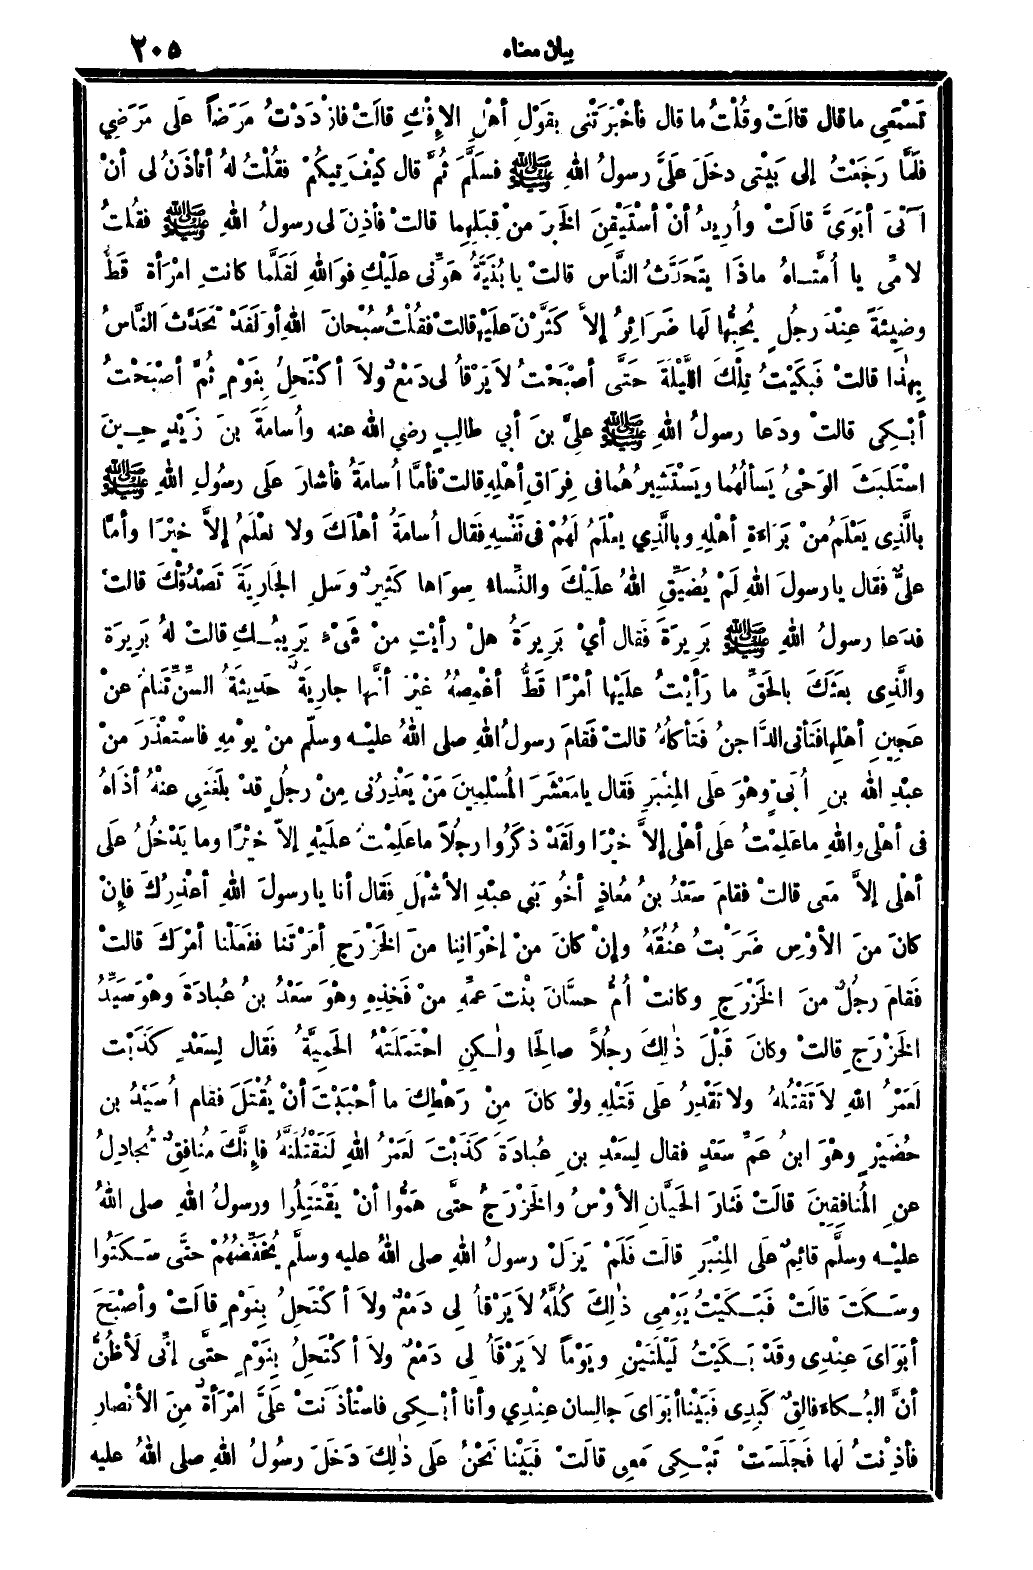 بيان معناه ٢٠٥
تَسْمَعِي ما قال قالَتْ وقُلْتُ ما قال فأخْبَرَتْنِي بقَوْلِ أهْلِ الإفْكِ قالَتْ فازْدَدْتُ مَرَضاً عَلى مَرَضِي
فلَمَّا رَجَعْتُ إلى بَيْتِي دخَلَ عَلَيَّ رسولُ اللهِ ﷺ فسَلَّمَ ثُمَّ قال كيْفَ تِيكُمْ فقُلْتُ لهُ أتأذَنُ لى أنْ
آتِيَ أبَوَيَّ قالَتْ وأُرِيدُ أنْ أسْتَيْقِنَ الخَبرَ مِنْ قِبَلِهِما قالت فأذِنَ لى رسولُ اللهِ ﷺ فقُلتُ
لامِّى يا أُمَّتاهُ ماذَا يتَحَدَّثُ النَّاس قالت يا بُنَيَّةُ هَوِّنى علَيْكِ فوَاللهِ لَقَلَّما كانتِ امْرَأة قَطُّ
وضِيئةً عِنْدَ رجُلٍ يُحِبُّها لَها ضَرَائِرُ إلاَّ كَثَّرْنَ علَيْها قالت فقُلْتُ سُبْحانَ اللهِ أوَلَقَدْ تَحَدَّثَ النَّاسُ
بِهٰذا قالت فَبَكَيْتُ تِلْكَ اللَّيْلَةَ حَتَّى أصْبَحْتُ لاَ يَرْقأُ لى دَمْعٌ ولاَ أكْتَحِلُ بِنَوْمٍ ثُمَّ أصْبَحْتُ
أبْكِى قالت ودَعا رسولُ اللهِ ﷺ علِيَّ بنَ أبي طالِبٍ رضي الله عنه وأُسامَةَ بنَ زَيْدٍ حِينَ
اسْتَلْبَثَ الوَحْىُ يَسألُهُما ويَسْتَشِيرُهُما فى فِرَاقِ أهْلِهِ قالت فأمَّا أُسامَةُ فأشارَ عَلى رسُولِ اللهِ ﷺ
بالَّذِى يَعْلَمُ مِنْ بَرَاءَةِ أهْلِهِ وبالَّذِي يعْلَمُ لَهُمْ فى نَفْسِهِ فَقال أُسامَةُ أهْلَكَ ولا نعْلَمُ إلاَّ خيْرًا وأمَّا
علىٌّ فَقال يا رسولَ اللهِ لَمْ يُضَيِّقِ اللهُ علَيْكَ والنِّساءُ سِوَاها كَثِيرٌ وسَلِ الجَارِيَةَ تَصْدُقْكَ قالت
فدَعا رسولُ اللهِ ﷺ بَرِيرَةَ فَقال أيْ بَرِيرَةُ هلْ رأيْتِ مِنْ شَىْءٍ يَرِيبُكِ قالَتْ لهُ بَرِيرَة
والَّذِى بعَثَكَ بالحَقِّ ما رَأيْتُ علَيْها أمْرًا قَطُّ أغْمِصُهُ غيْرَ أنَّها جارِيَةٌ حَدِيثَةُ السِّنِّ تَنامُ عنْ
عَجِينِ أهْلِها فتَأتى الدَّاجنُ فتَأكلُهُ قالت فَقامَ رسولُ اللهِ صلى اللهُ عليْه وسلّم مِنْ يوْمِهِ فاسْتعْذَرَ مِنْ
عبْدِ الله بنِ أُبَىٍّ وهْوَ عَلى المِنْبَرِ فَقال يا مَعْشَرَ المُسْلِمِينَ مَنْ يَعْذِرُنى مِنْ رجُلٍ قدْ بلَغَنِى عنْهُ أذَاهُ
فى أهْلى واللهِ ما عَلِمْتُ عَلى أهْلى إلاَّ خيْرًا ولَقَدْ ذكَرُوا رجُلاً ما عَلِمْتُ علَيْهِ إلاّ خيْرًا وما يَدْخُلُ عَلى
أهْلى إلاَّ مَعى قالت فقامَ سَعْدُ بنُ مُعاذٍ أخُو بَنِي عبْدِ الأشْهَلِ فَقال أنا يا رسولَ اللهِ أعْذِرُكَ فإنْ
كانَ مِنَ الأوْسِ ضَرَبْتُ عُنُقَهُ وإنْ كانَ مِنْ إخْوَانِنا مِنَ الخَزْرَجِ أمَرْتَنا ففَعَلْنا أمْرَكَ قالت
فَقامَ رجُلٌ مِنَ الخَزْرَجِ وكانَتْ أُمُّ حسَّانَ بِنْتَ عمِّهِ مِنْ فَخِذِهِ وهْوَ سَعْدُ بنُ عُبادَةَ وهْوَ سَيِّدُ
الخَزْرَجِ قالت وكانَ قَبْلَ ذٰلِكَ رجُلاً صالِحًا ولٰكِنِ احْتَمَلَتْهُ الحَمِيَّةُ فَقال لِسَعْدٍ كَذَبْت
لَعَمْرُ اللهِ لاَ تَقْتُلُهُ ولا تَقْدِرُ عَلى قَتْلِهِ ولوْ كانَ مِنْ رَهْطِكَ ما أحْبَبْتَ أنْ يُقْتَلَ فقام أُسَيْدُ بن
حُضَيْرٍ وهْوَ ابنُ عَمِّ سَعْدٍ فقال لِسَعْدِ بنِ عُبادَةَ كَذَبْتَ لَعَمْرُ اللهِ لَنَقْتُلَنَّهُ فإنَّكَ مُنافِقٌ تُجادِلُ
عنِ المُنافِقِينَ قالَتْ فَثارَ الحَيَّانِ الأوْسُ والخَزْرَجُ حتَّى هَمُّوا أنْ يَقْتَتِلُوا ورسولُ اللهِ صلى اللهُ
عليْه وسلَّم قائِمٌ عَلى المِنْبَرِ قالَت فَلَمْ يَزَلْ رسولُ اللهِ صلى اللهُ عليه وسلَّم يُخَفِّضُهُمْ حتَّى سَكَتُوا
وسَكَتَ قالَتْ فَبَكَيْتُ يَوْمِى ذٰلِكَ كُلَّهُ لاَ يَرْقأُ لِى دَمْعٌ ولاَ أكْتَحِلُ بِنَوْمٍ قالَتْ وأصْبَحَ
أبَوَاىَ عِنْدِى وقَدْ بَكَيْتُ لَيْلَتَيْنِ ويَوْماً لاَ يَرْقَأُ لِى دَمْعٌ ولاَ أكْتَحِلُ بِنَوْمٍ حتَّى إنِّى لَأظُنُّ
أنَّ البُكاءَ فالِقٌ كَبِدِى فَبَيْنا أبَوَاىَ جالِسان عِنْدِي وأنا أبْكِى فاستأذَنَتْ عَلَىَّ امْرَأةٌ مِنَ الأنْصارِ
فأذِنْتُ لَها فَجَلَسَتْ تَبْكِى مَعِى قالَتْ فَبَيْنا نَحْنُ عَلَى ذٰلِكَ دَخَلَ رسولُ اللهِ صلى اللهُ عليه